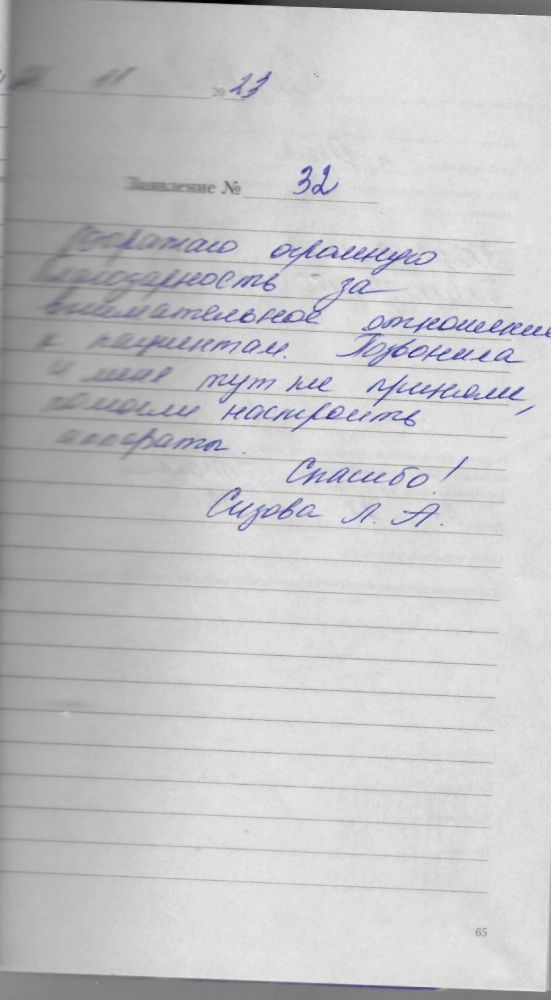 11 2023
Заявление № 32
Выражаю огромную
благодарность за
внимательное отношение
к пациентам. Позвонила
и меня тут же приняли,
помогли настроить
аппараты.
Спасибо!
Сизова Л. А.
65